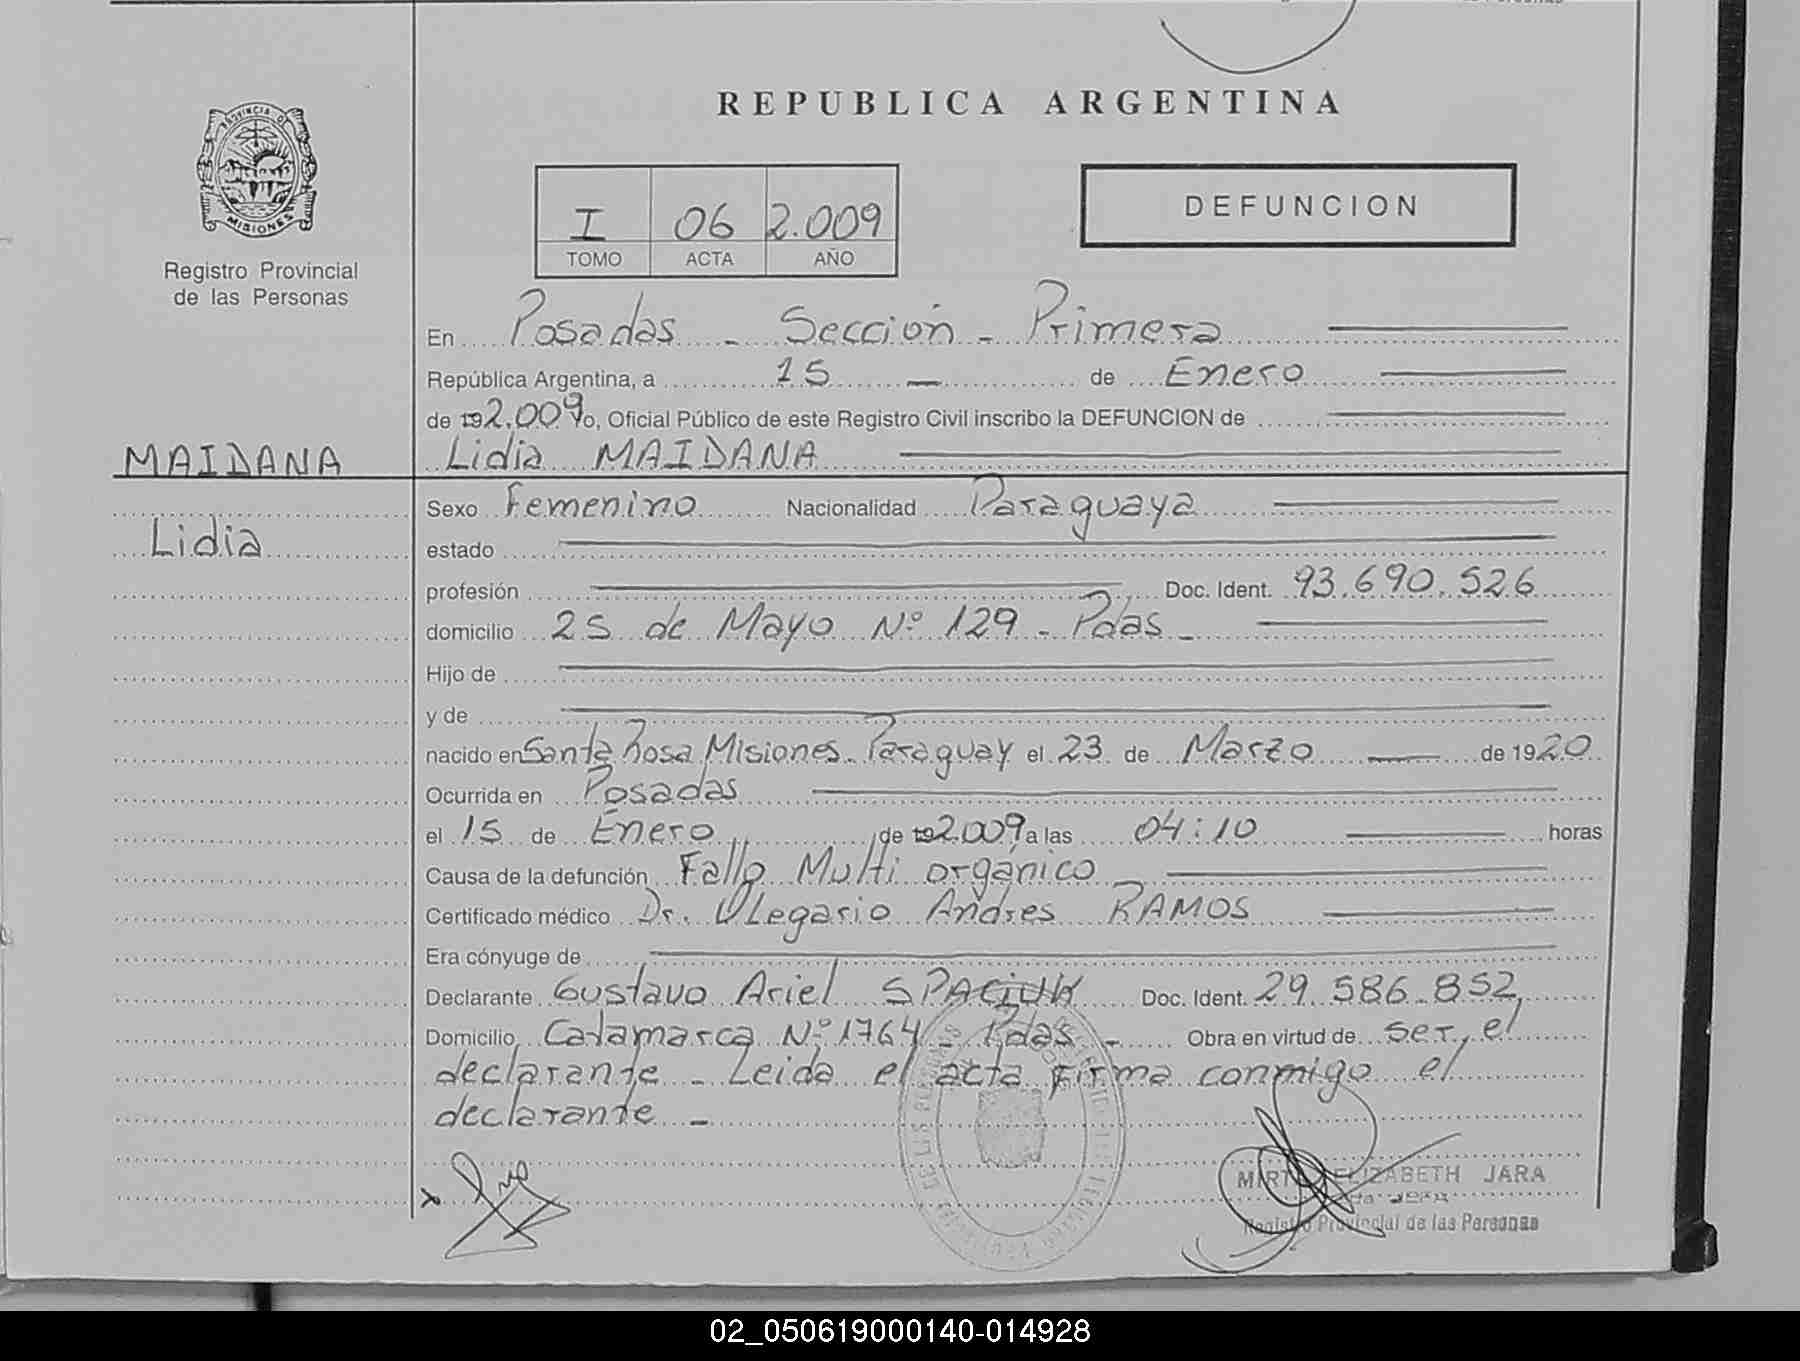 REPUBLICA ARGENTINA
PROVINCIA DE
MISIONES
Registro Provincial
de las Personas
I 06 2.009
TOMO ACTA AÑO
DEFUNCION
En Posadas - Sección - Primera
República Argentina, a 15 - de Enero
de 192.009 yo, Oficial Público de este Registro Civil inscribo la DEFUNCION de
MAIDANA
Lidia MAIDANA
Lidia
Sexo Femenino Nacionalidad Paraguaya
estado
profesión Doc. Ident. 93.690.526
domicilio 25 de Mayo Nº 129 - Pdas -
Hijo de
y de
nacido en Santa Rosa Misiones - Paraguay el 23 de Marzo de 1920
Ocurrida en Posadas
el 15 de Enero de 192.009 a las 04:10 horas
Causa de la defunción Fallo Multi orgánico
Certificado médico Dr. Ulegario Andres RAMOS
Era cónyuge de
Declarante Gustavo Ariel SPACIUK Doc. Ident. 29.586.852
Domicilio Catamarca Nº 1764 - Pdas - Obra en virtud de ser el
declarante - Leida el acta firma conmigo el
declarante -
MIRTA ELIZABETH JARA
Registro Provincial de las Personas
02_050619000140-014928